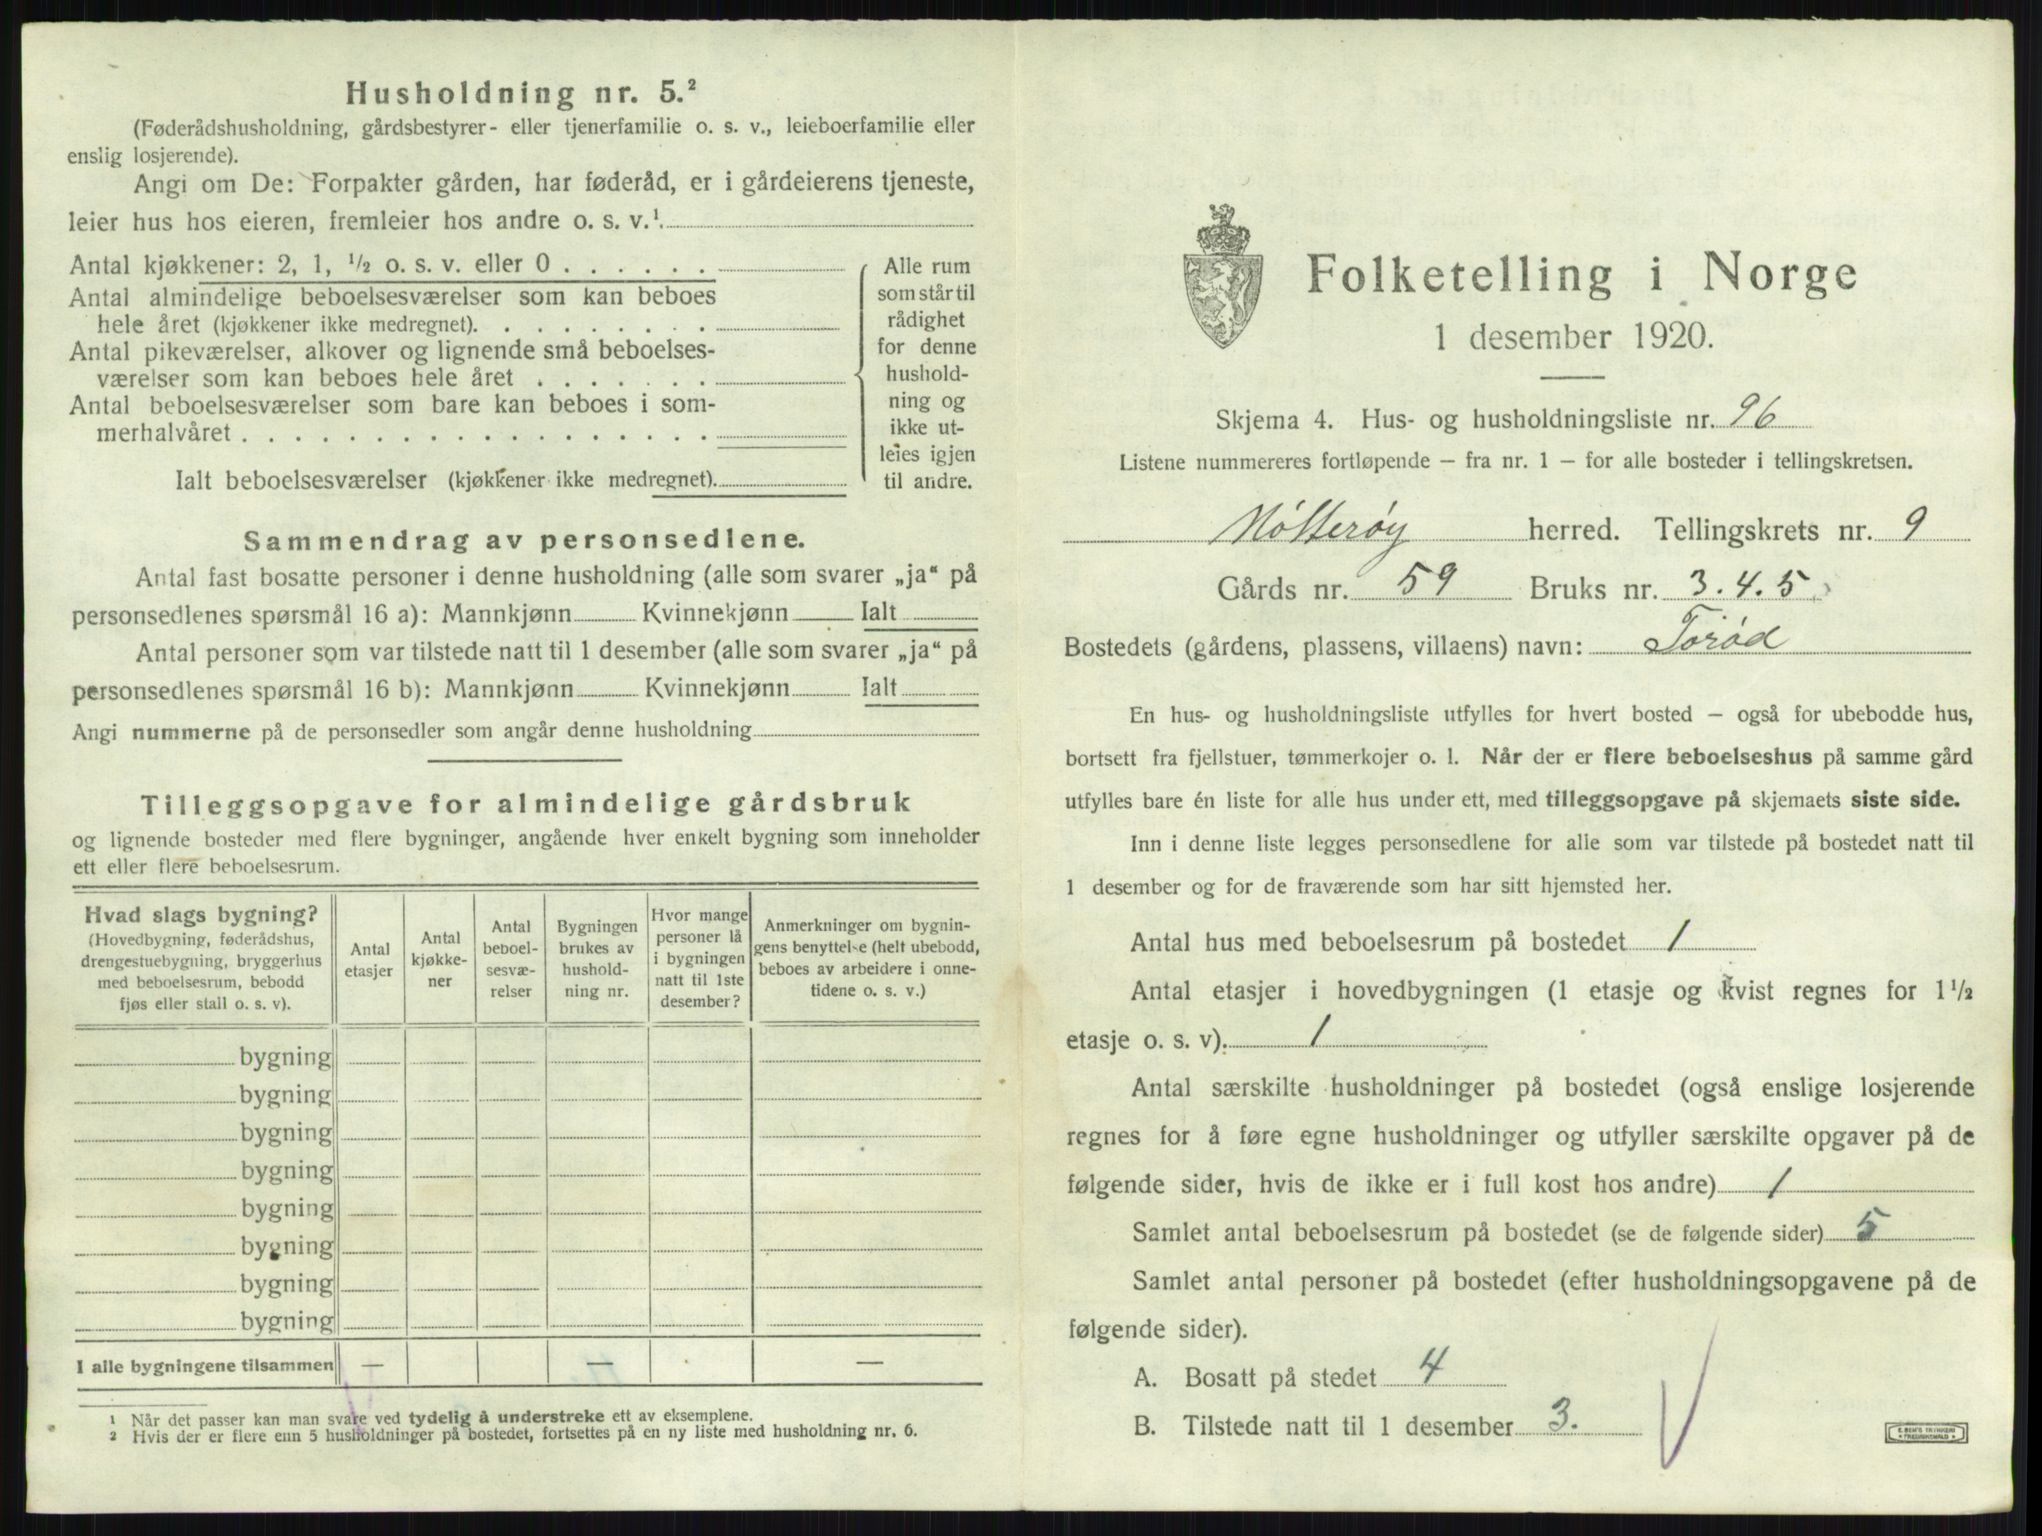 Husholdning nr. 5.²
(Føderådshusholdning, gårdsbestyrer- eller tjenerfamilie o. s. v., leieboerfamilie eller
enslig losjerende).
Angi om De: Forpakter gården, har føderåd, er i gårdeierens tjeneste,
leier hus hos eieren, fremleier hos andre o. s. v.¹.
Antal kjøkkener: 2, 1, ½ o. s. v. eller 0 . . . . . .
Antal almindelige beboelsesværelser som kan beboes
hele året (kjøkkener ikke medregnet). . . . . . . . .
Antal pikeværelser, alkover og lignende små beboelses-
værelser som kan beboes hele året . . . . . . .
Antal beboelsesværelser som bare kan beboes i som-
merhalvåret . . . . . . . . . . . . . . . . . .
Ialt beboelsesværelser (kjøkkener ikke medregnet).
Alle rum
som står til
rådighet
for denne
hushold-
ning og
ikke ut-
leies igjen
til andre.
Sammendrag av personsedlene.
Antal fast bosatte personer i denne husholdning (alle som svarer „ja“ på
personsedlenes spørsmål 16 a): Mannkjønn Kvinnekjønn Ialt
Antal personer som var tilstede natt til 1 desember (alle som svarer „ja“ på
personsedlenes spørsmål 16 b): Mannkjønn Kvinnekjønn Ialt
Angi nummerne på de personsedler som angår denne husholdning
Tilleggsopgave for almindelige gårdsbruk
og lignende bosteder med flere bygninger, angående hver enkelt bygning som inneholder
ett eller flere beboelsesrum.
Hvad slags bygning?
(Hovedbygning, føderådshus,
drengestuebygning, bryggerhus
med beboelsesrum, bebodd
fjøs eller stall o. s. v).
Antal
etasjer
Antal
kjøkke-
ner
Antal
beboel-
sesvæ-
relser
Bygningen
brukes av
hushold-
ning nr.
Hvor mange
personer lå
i bygningen
natt til 1ste
desember?
Anmerkninger om bygnin-
gens benyttelse (helt ubebodd,
beboes av arbeidere i onne-
tidene o. s. v.)
bygning
bygning
bygning
bygning
bygning
bygning
bygning
bygning
I alle bygningene tilsammen — — —
¹ Når det passer kan man svare ved tydelig å understreke ett av eksemplene.
² Hvis der er flere enn 5 husholdninger på bostedet, fortsettes på en ny liste med husholdning nr. 6.
Folketelling i Norge
1 desember 1920.
Skjema 4. Hus- og husholdningsliste nr. 96
Listene nummereres fortløpende — fra nr. 1 — for alle bosteder i tellingskretsen.
Nøtterøy herred. Tellingskrets nr. 9
Gårds nr. 59 Bruks nr. 3.4.5
Bostedets (gårdens, plassens, villaens) navn: Torød
En hus- og husholdningsliste utfylles for hvert bosted — også for ubebodde hus,
bortsett fra fjellstuer, tømmerkojer o. l. Når der er flere beboelseshus på samme gård
utfylles bare én liste for alle hus under ett, med tilleggsopgave på skjemaets siste side.
Inn i denne liste legges personsedlene for alle som var tilstede på bostedet natt til
1 desember og for de fraværende som har sitt hjemsted her.
Antal hus med beboelsesrum på bostedet 1
Antal etasjer i hovedbygningen (1 etasje og kvist regnes for 1½
etasje o. s. v). 1
Antal særskilte husholdninger på bostedet (også enslige losjerende
regnes for å føre egne husholdninger og utfyller særskilte opgaver på de
følgende sider, hvis de ikke er i full kost hos andre) 1
Samlet antal beboelsesrum på bostedet (se de følgende sider) 5
Samlet antal personer på bostedet (efter husholdningsopgavene på de
følgende sider).
A. Bosatt på stedet 4
B. Tilstede natt til 1 desember 3.